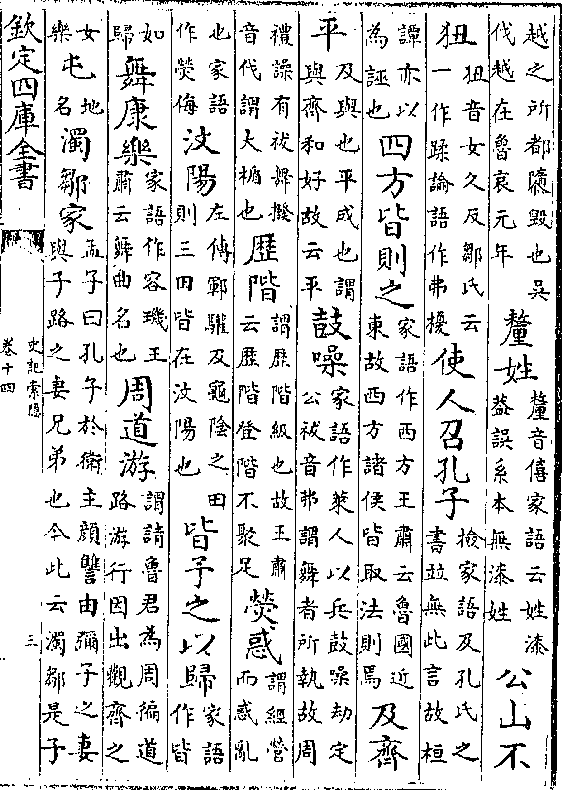 越之所都隳毀也吳伐越在魯哀元年釐姓釐音僖家語云姓漆蓋誤系本無漆姓公山不
狃狃音女久反鄒氏云一作蹂論語作弗擾使人召孔子檢家語及孔氏之書竝無此言故桓
譚亦以為誣也四方皆則之家語作西方王肅云魯國近東故西方諸侯皆取法則焉及齊
平及與也平成也謂與齊和好故云平鼓噪家語作萊人以兵鼓噪劫定公祓音弗謂舞者所執故周
禮譟有祓舞撥音伐謂大楯也歷階謂歷階級也故王肅云歷階登階不聚足熒惑謂經營而惑亂
也家語作熒侮汶陽左傳鄆驩及龜陰之田則三田皆在汶陽也皆予之以歸家語作皆
如歸舞康樂家語作容璣王肅云舞曲名也周道游謂請魯君為周徧道路游行因出觀齊之
女樂屯地名濁鄒家孟子曰孔子於衛主顏讐由彌子之妻與子路之妻兄弟也今此云濁鄒是子
欽定四庫全書
史記索隱
卷十四
三